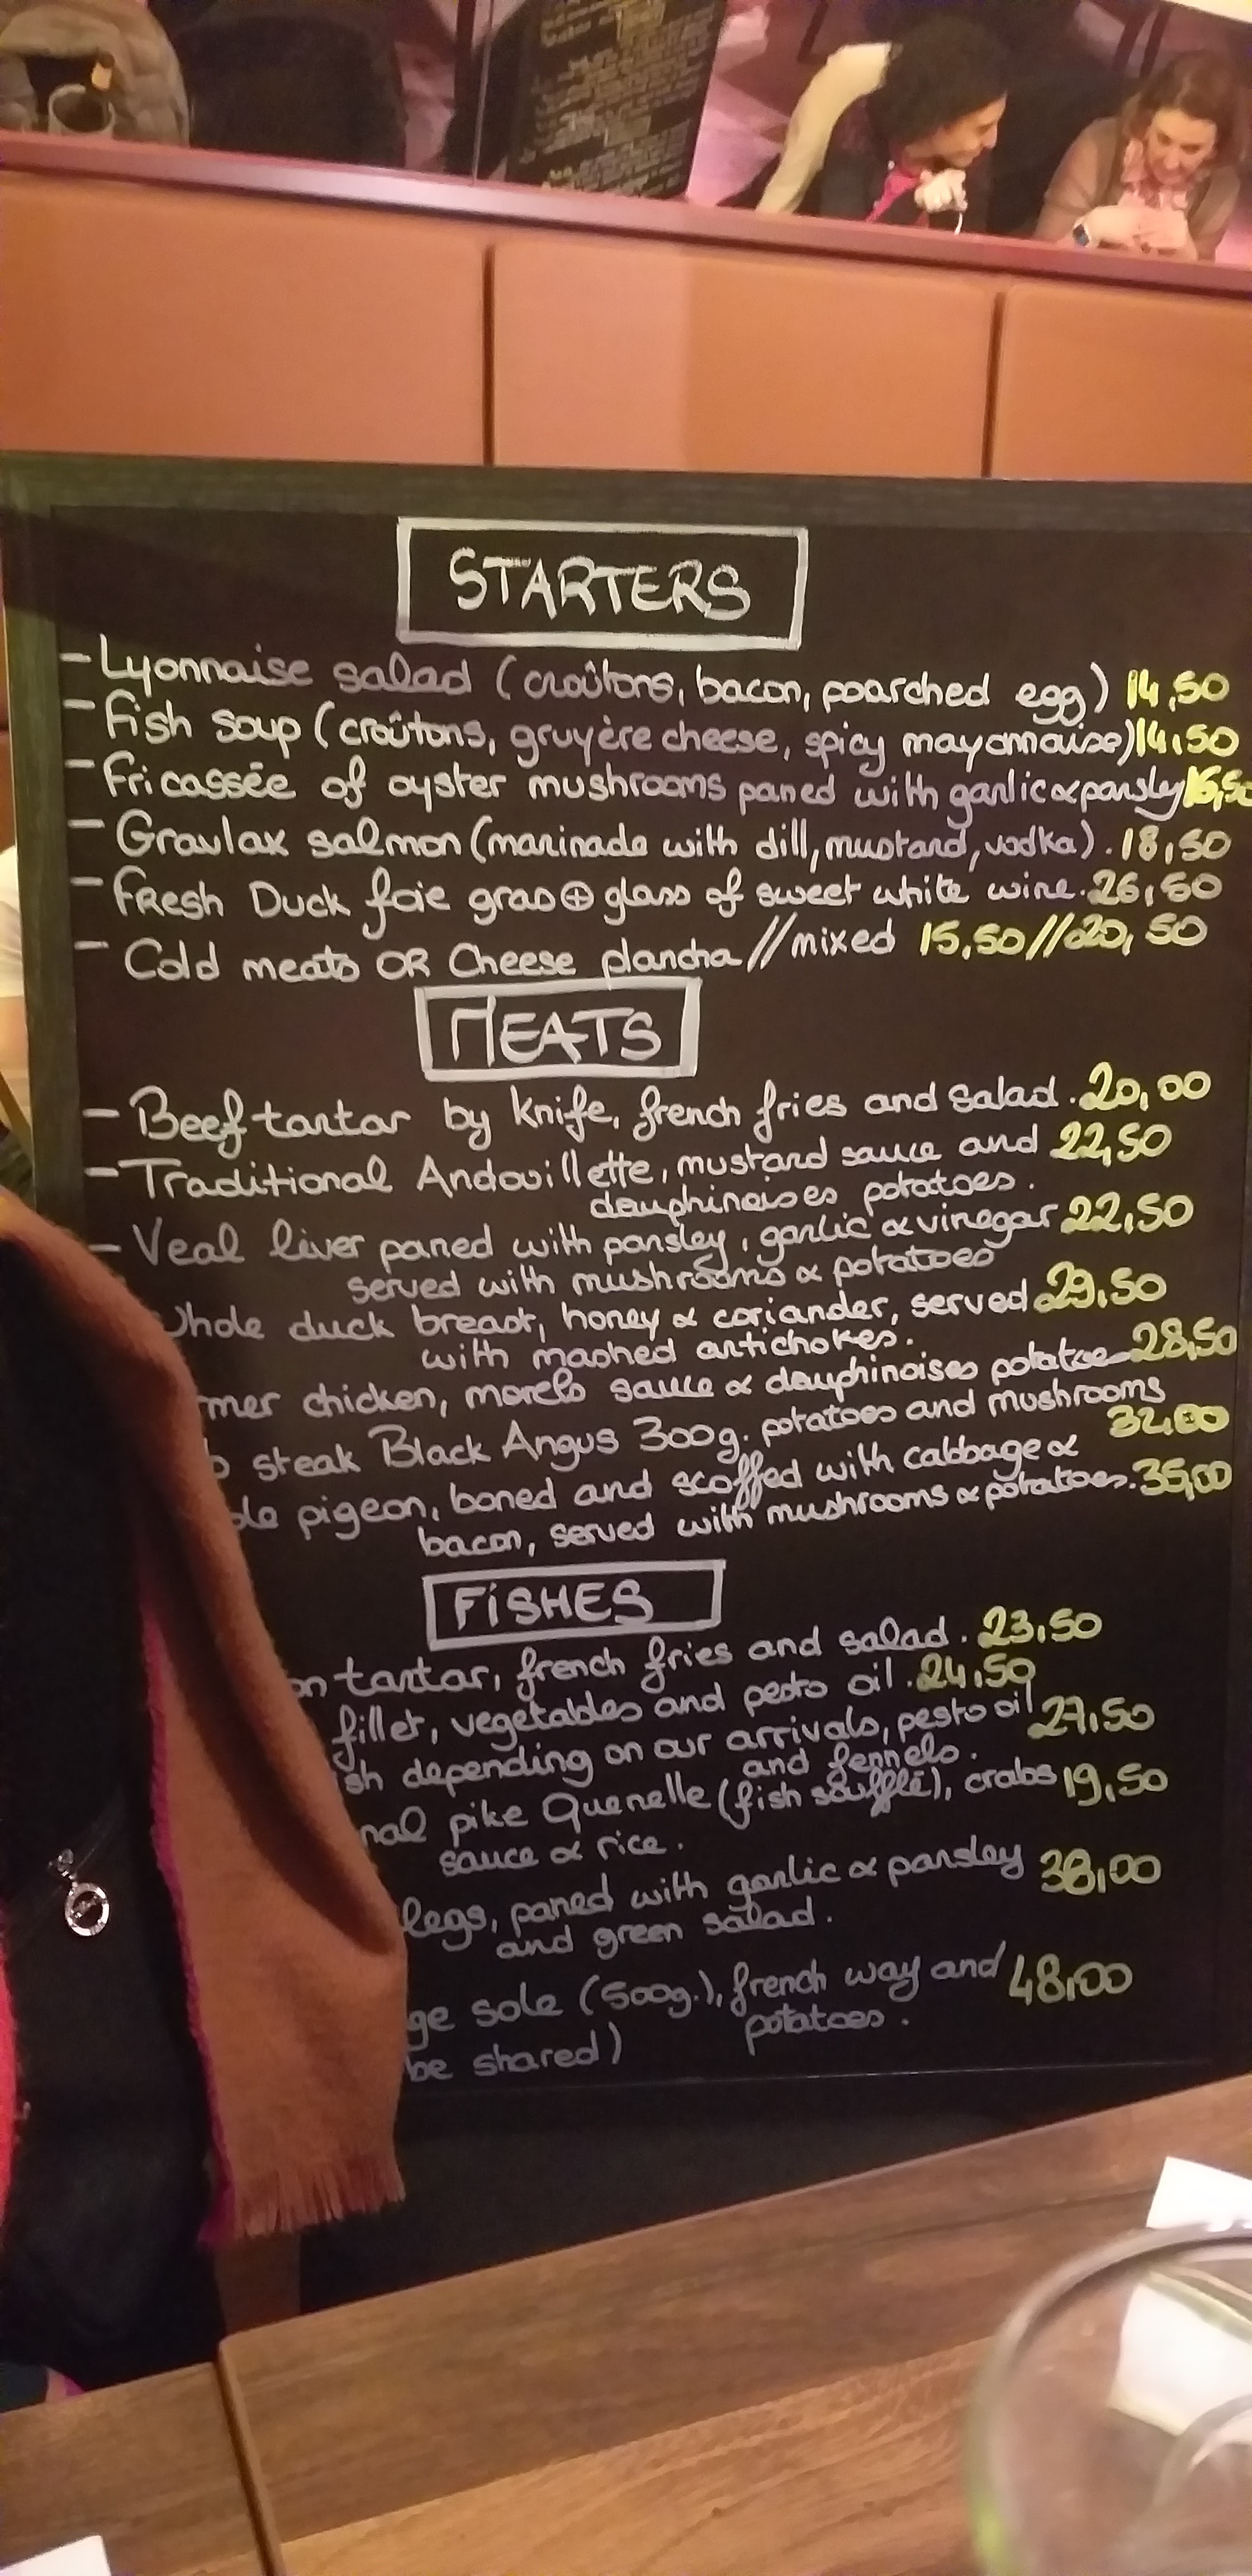 STARTERS
- Lyonnaise salad (croûtons, bacon, poarched egg) 14,50
- Fish soup (croûtons, gruyère cheese, spicy mayonnaise) 14,50
- Fricassée of oyster mushrooms paned with garlic & parsley 16,50
- Gravlax salmon (marinade with dill, mustard, vodka). 18,50
- Fresh Duck foie gras ⊕ glass of sweet white wine. 26,50
- Cold meats OR Cheese plancha // mixed 15,50 // 20,50
MEATS
- Beef tartar by knife, french fries and salad. 20,00
- Traditional Andouillette, mustard sauce and 22,50
dauphinoises potatoes.
- Veal liver paned with parsley, garlic & vinegar 22,50
served with mushrooms & potatoes
whole duck breast, honey & coriander, served 29,50
with mashed artichokes.
mer chicken, morels sauce & dauphinoises potatoes 28,50
steak Black Angus 300g. potatoes and mushrooms
32,00
le pigeon, boned and scoffed with cabbage &
bacon, served with mushrooms & potatoes. 35,00
FISHES
on tartar, french fries and salad. 23,50
fillet, vegetables and pesto oil. 24,50
sh depending on our arrivals, pesto oil 27,50
and fennels.
nal pike Quenelle (fish soufflé), crabs 19,50
sauce & rice.
legs, paned with garlic & parsley 38,00
and green salad.
ge sole (500g.), french way and 48,00
potatoes.
be shared)